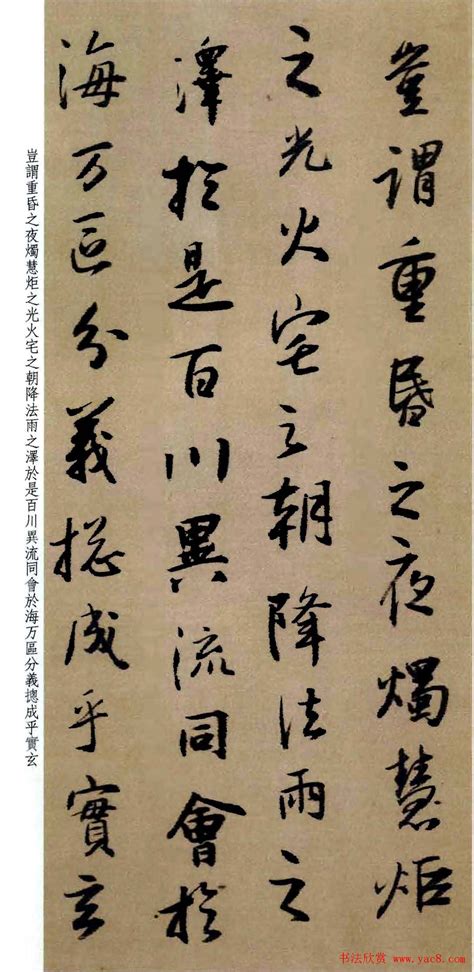 豈謂重昏之夜燭慧炬
之光火宅之朝降法雨之
澤於是百川異流同會於
海万區分義揔成乎實玄
豈謂重昏之夜燭慧炬之光火宅之朝降法雨之澤於是百川異流同會於海万區分義摠成乎實玄
书法欣赏 www.yac8.com